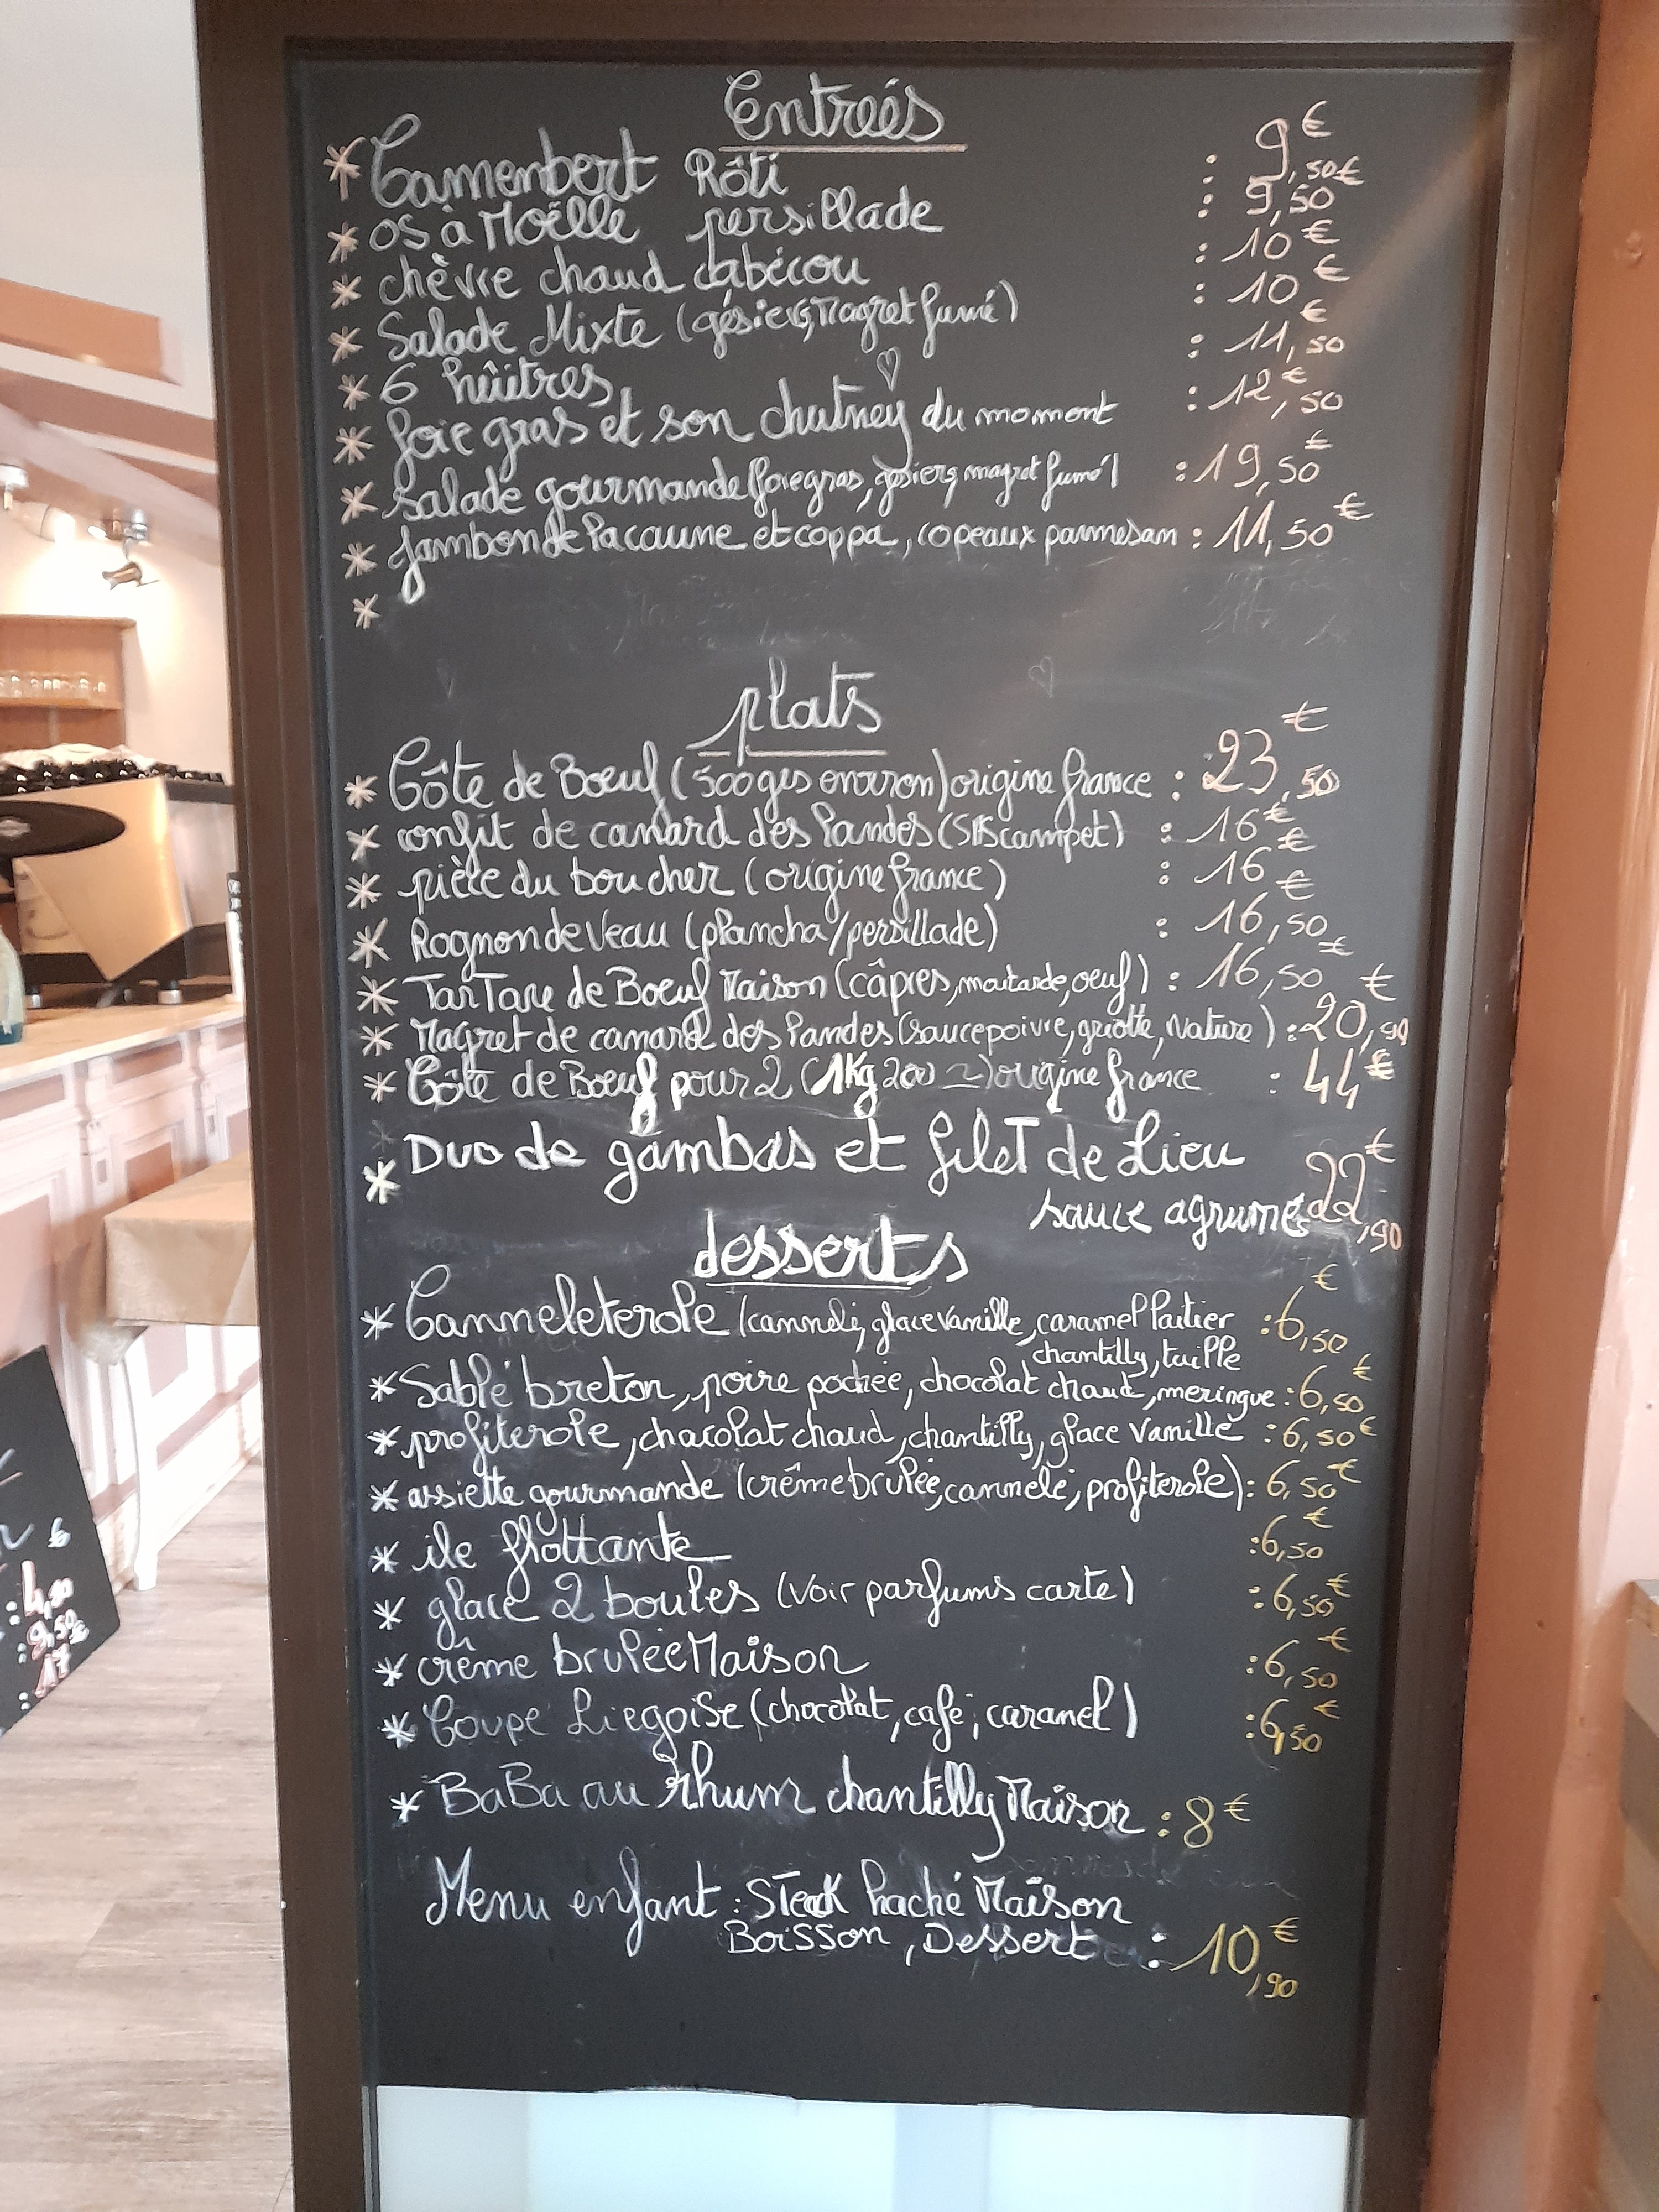 Entrées
* Camembert Rôti : 9,50€
* os à Moëlle persillade : 9,50€
* chèvre chaud cabécou : 10€
* Salade Mixte (gésiers, Magret fumé) : 10€
* 6 hûitres : 11,50€
* foie gras et son chutney du moment : 12,50€
* Salade gourmande (foie gras, gésiers, magret fumé) : 19,50€
* Jambon de Lacaune et coppa, copeaux parmesan : 11,50€
*
plats
* Côte de Bœuf (500 grs environ) origine france : 23,50€
* confit de canard des Landes (St Scampet) : 16€
* pièce du boucher (origine france) : 16€
* Rognon de Veau (plancha/persillade) : 16,50€
* TarTare de Bœuf Maison (câpres, moutarde, oeuf) : 16,50€
* Magret de canard des Landes (sauce poivre, griotte, Nature) : 20,90€
* Côte de Bœuf pour 2 (1Kg 200 ~) origine france : 44€
* Duo de gambas et filet de Lieu
sauce agrumes 22,90€
desserts
* Canneleterole (cannelé, glace vanille, caramel Laitier : 6,50€
chantilly, tuille
* Sablé breton, poire pochée, chocolat chaud, meringue : 6,50€
* profiterole, chocolat chaud, chantilly, glace Vanille : 6,50€
* assiette gourmande (crême brulée, cannelé, profiterole) : 6,50€
* ile flottante : 6,50€
* glace 2 boules (Voir parfums carte) : 6,50€
* crème brulée Maison : 6,50€
* Coupe Liegoise (chocolat, café, caramel) : 6,50€
* BaBa au Rhum chantilly Maison : 8€
Menu enfant : STeak haché Maison
Boisson, Dessert : 10,90€
: 4,90
: 9,50€
: 17